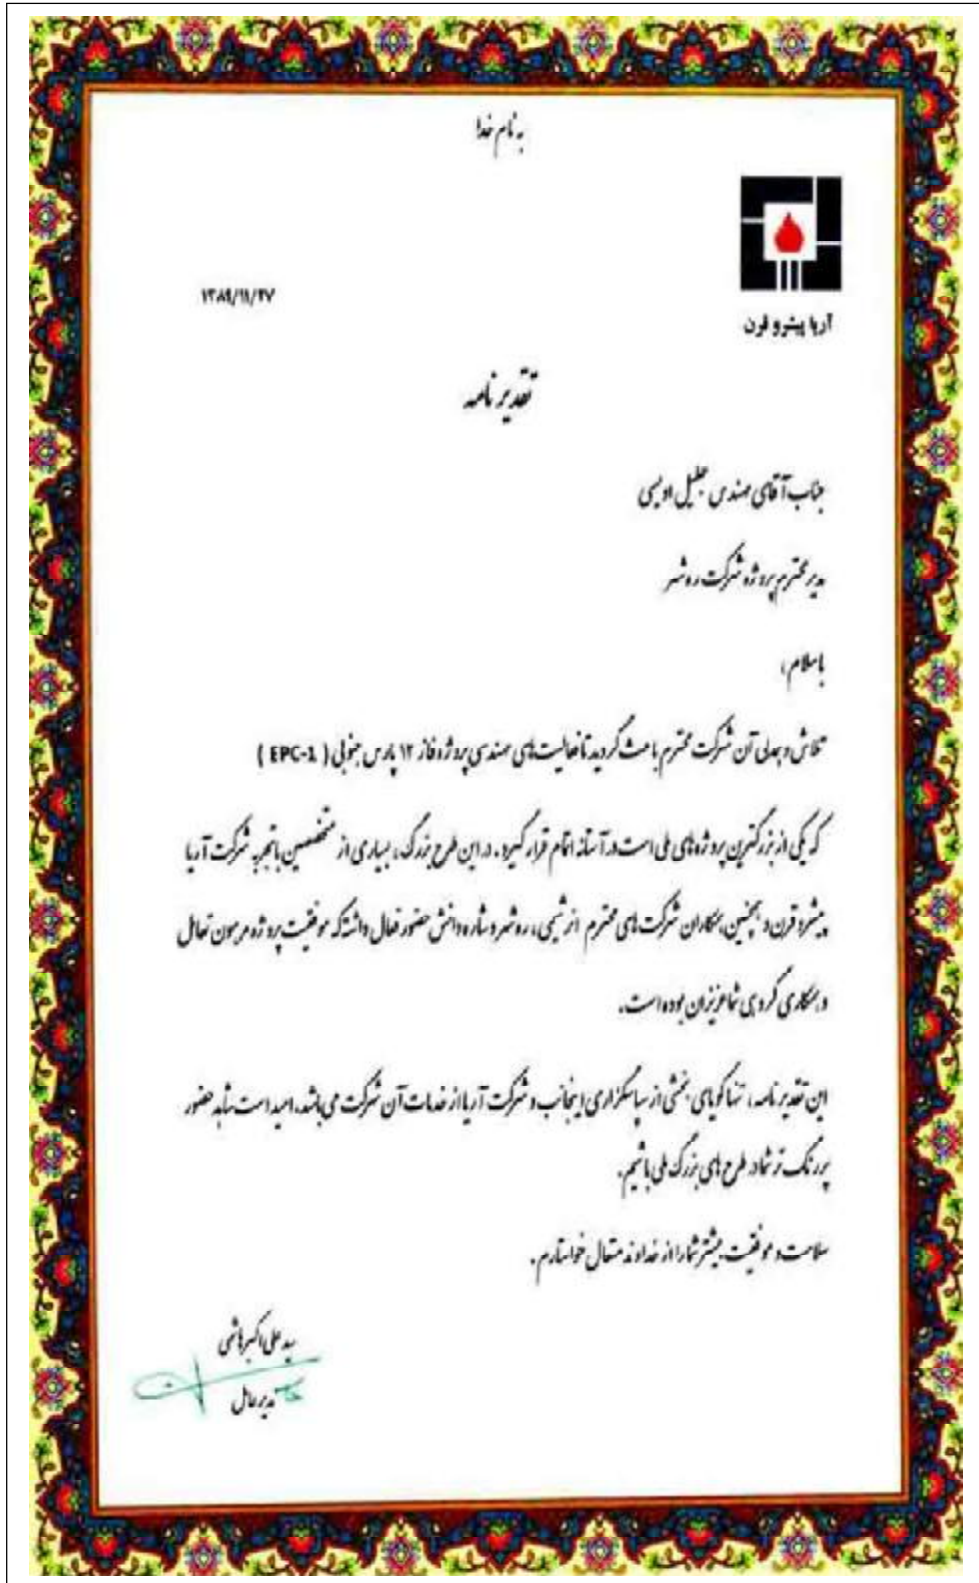 به نام خدا
آریا پیشرو قرن
۱۳۸۹/۱۱/۲۷
تقدیر نامه
جناب آقای مهندس جلیل اویسی
مدیر محترم پروژه شرکت ره شهر
باسلام ،
تلاش و همدلی آن شرکت محترم باعث گردید تا فعالیت های مهندسی پروژه فاز ۱۲ پارس جنوبی ( EPC-1 )
که یکی از بزرگترین پروژه های ملی است در آستانه اتمام قرار گیرد . در این طرح بزرگ ، بسیاری از متخصصین باتجربه شرکت آریا
پیشرو قرن و همچنین همکاران شرکت های محترم انرشیمی ، ره شهر و سازه دانش حضور فعال داشته که موفقیت پروژه مرهون تعامل
و همکاری گروهی شما عزیزان بوده است .
این تقدیر نامه ، تنها گویای بخشی از سپاسگزاری اینجانب و شرکت آریا از خدمات آن شرکت می باشد ، امید است شاهد حضور
پررنگ تر شما در طرح های بزرگ ملی باشیم .
سلامت و موفقیت بیشتر شما را از خداوند متعال خواستارم .
سید علی اکبر هاشمی
مدیر عامل